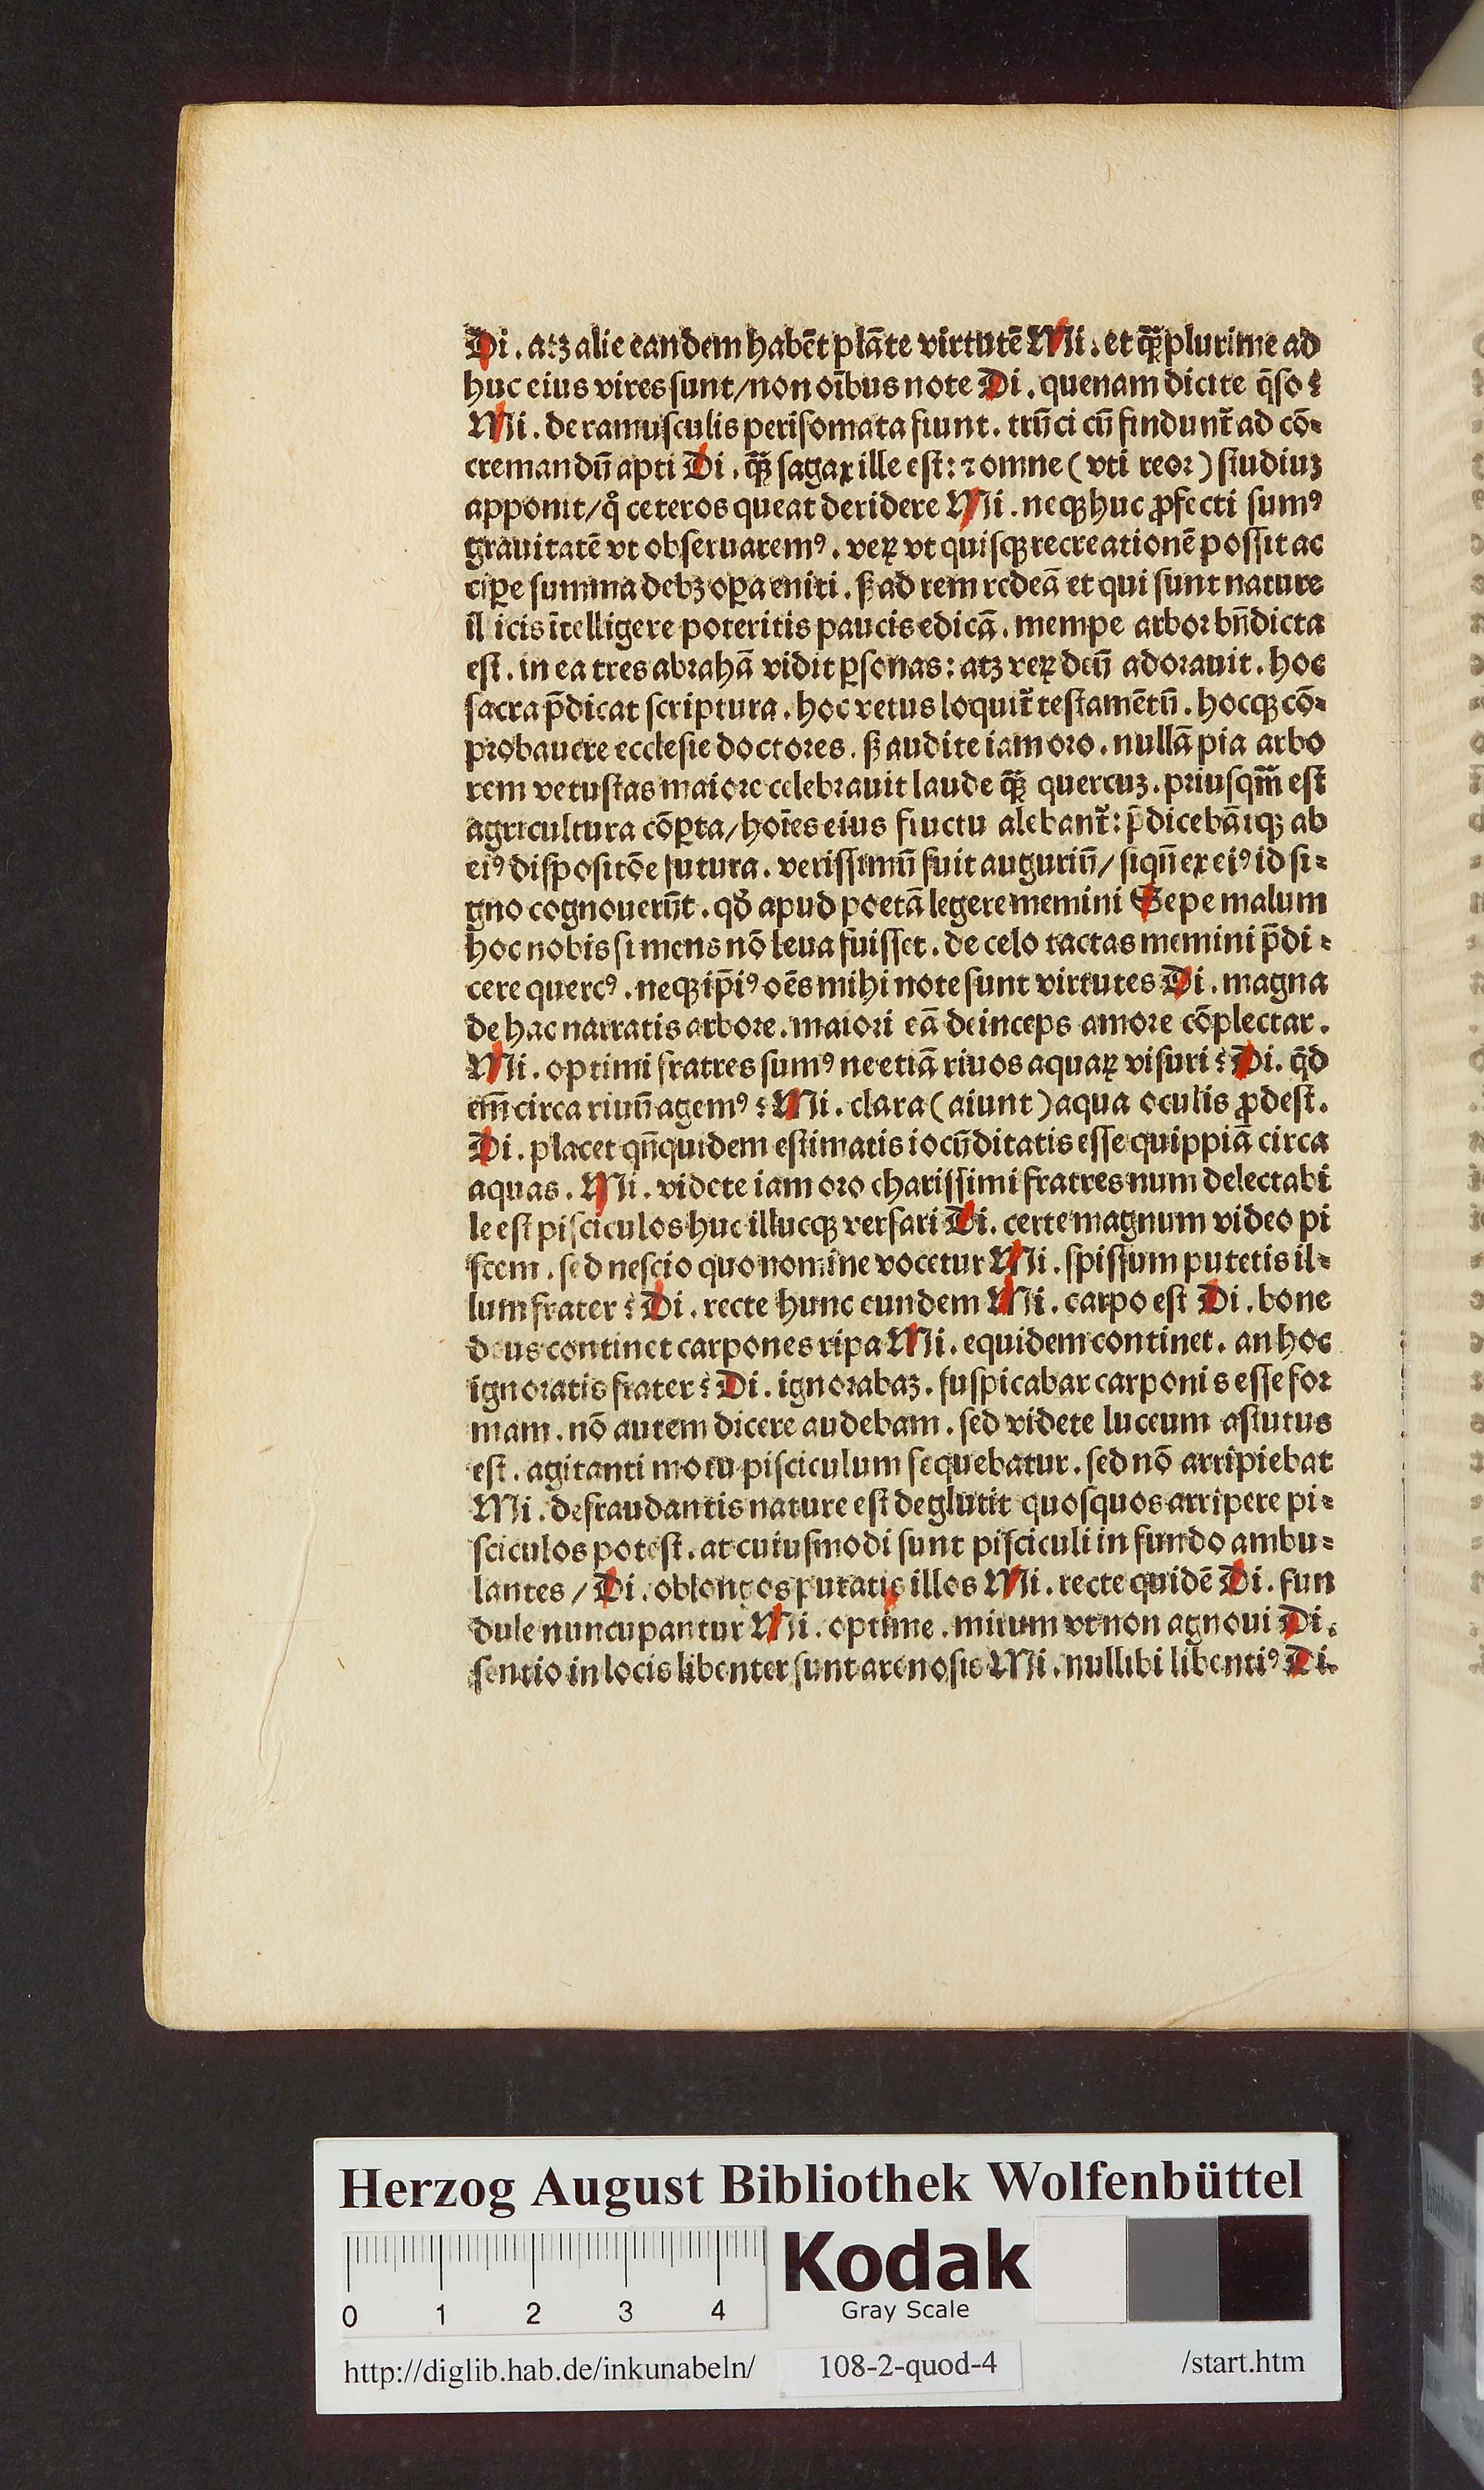 Di. atꝫ alie eandem habēt plāte virtutē Mi. et qꝫ̄ plurime ad
huc eius vires sunt/non oībus note Di. quenam dicite q̄so?
Mi. de ramusculis perisomata fiunt. trūci cū findunt᷑ ad cō-
cremandū apti Di. qꝫ̄ sagax ille est: ⁊ omne (vti reor) studiuꝫ
apponit/q̊ ceteros queat deridere Mi. neqꝫ huc ꝓfecti sumꝰ
grauitatē vt obseruaremꝰ. veꝝ vt quisqꝫ recreationē possit ac
cipe summa debꝫ oꝑa eniti. sꝫ ad rem redeā et qui sunt nature
il icis ītelligere poteritis paucis edicā. mempe arbor bn̄dicta
est. in ea tres abrahā vidit ꝑsonas: atꝫ veꝝ deū adorauit. hoc
sacra p̄dicat scriptura. hoc vetus loquit᷑ testamētū. hocqꝫ cō-
probauere ecclesie doctores. sꝫ audite iam oro. nullā pia arbo
rem vetustas maiore celebrauit laude qꝫ̄ quercuꝫ. priusqm̄ est
agricultura cōꝑta/hoīes eius fructu alebant᷑: p̄dicebātqꝫ ab
eiꝰ dispositōe futura. verissimū fuit auguriū/siqn̄ ex eiꝰ id si-
gno cognouerūt. qd̕ apud poetā legere memini Sepe malum
hoc nobis si mens nō leua fuisset. de celo tactas memini p̄di-
cere quercꝰ. neqꝫ ip̄iꝰ oēs mihi note sunt virtutes Di. magna
de hac narratis arbore. maiori eā deinceps amore cōplectar.
Mi. optimi fratres sumꝰ ne etiā riuos aquaꝝ visuri? Di. q̄d
em̄ circa riuū agemꝰ? Mi. clara (aiunt) aqua oculis ꝓdest.
Di. placet qn̄quidem estimatis iocūditatis esse quippiā circa
aquas. Mi. videte iam oro charissimi fratres num delectabi
le est pisciculos huc illucqꝫ versari Di. certe magnum video pi
scem. sed nescio quo nomine vocetur Mi. spissum putetis il-
lum frater? Di. recte hunc eundem Mi. carpo est Di. bone
deus continet carpones ripa Mi. equidem continet. an hoc
ignoratis frater? Di. ignorabaꝫ. suspicabar carponis esse for
mam. nō autem dicere audebam. sed videte luceum astutus
est. agitanti motu pisciculum sequebatur. sed nō arripiebat
Mi. defraudantis nature est deglutit quosquos arripere pi-
sciculos potest. at cuiusmodi sunt pisciculi in fundo ambu-
lantes/Di. oblongos putatis illos Mi. recte quidē Di. fun
dule nuncupantur Mi. optime. mirum vt non agnoui Di.
sentio in locis libenter sunt arenosis Mi. nullibi libentiꝰ Di.
Herzog August Bibliothek Wolfenbüttel
0 1 2 3 4
Kodak
Gray Scale
http://diglib.hab.de/inkunabeln/ 108-2-quod-4 /start.htm